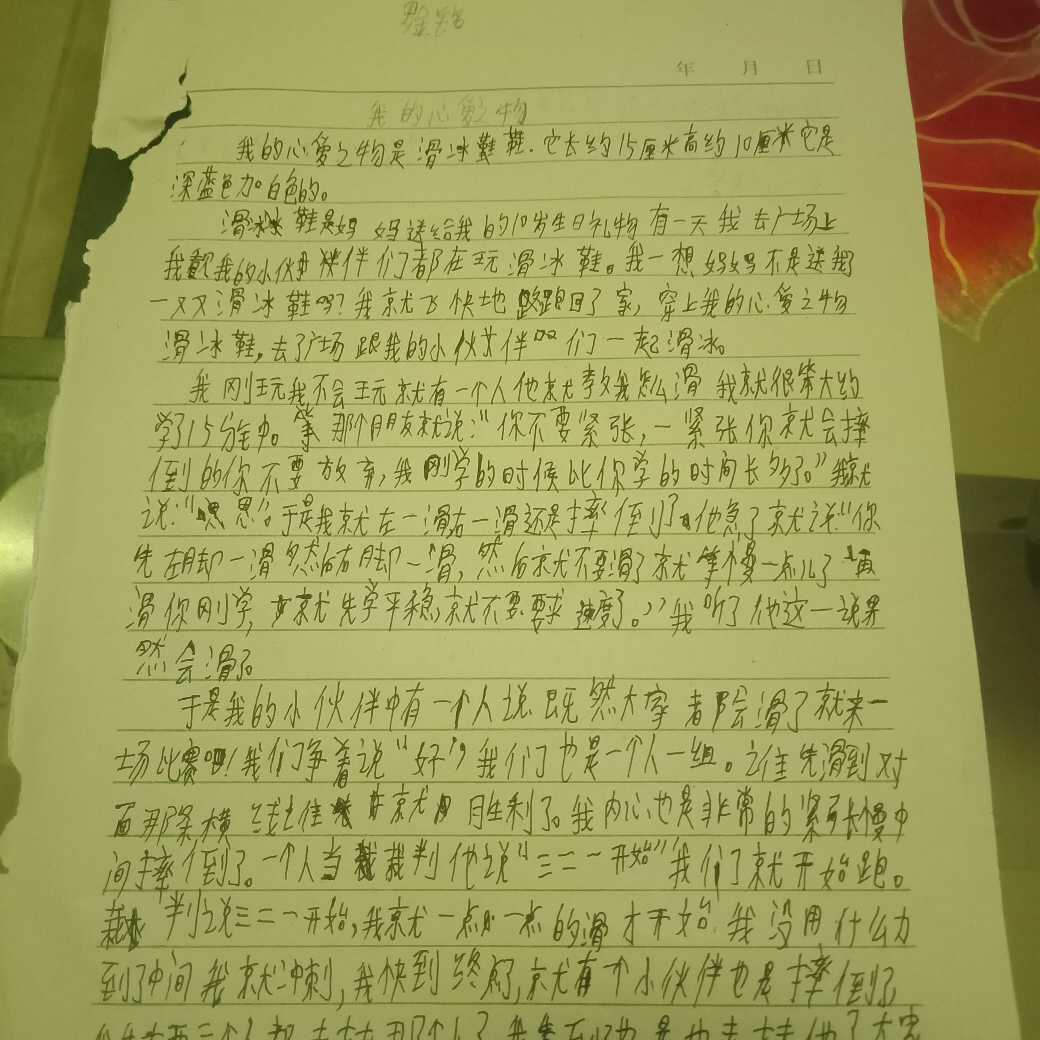 年 月 日
我的心爱之物
我的心爱之物是滑冰鞋鞋.它长约15厘米高约10厘米它是
深蓝色加白色的。
滑冰鞋是妈妈送给我的10岁生日礼物有一天我去广场上
我我的小伙伴们都在玩滑冰鞋。我一想妈妈不是送我
一双又滑冰鞋吗?我就飞快地跑回了家,穿上我的心爱之物
滑冰鞋,去了广场跟我的小伙伴们一起滑冰。
我刚玩我不会玩就有一个人他就教我怎么滑我就很笨大约
学了15分钟。那个朋友就说:“你不要紧张,一紧张你就会摔
倒的你不要放弃,我刚学的时候比你学的时间长多了。”我就
说:“嗯恩”。于是我就左一滑右一滑还是摔倒了他急了就说“你
先左脚一滑然后右脚一滑,然后就不要滑了就等慢一点儿了再
滑你刚学,就先学平稳,就不要要求速度了。”我听了他这一说果
然会滑了。
于是我的小伙伴中有一个人说既然大家都会滑了就来一
场比赛吧!我们争着说“好”我们也是一个人一组。谁先滑到对
面那条横线谁就胜利了。我内心也是非常的紧张慢中
间摔倒了。一个人当裁判他说“三二一开始”我们了就开始跑。
裁判说三二一开始,我就一点一点的滑才开始我没用什么力
到了中间我就冲刺,我快到终点了,就有个小伙伴也是摔倒了